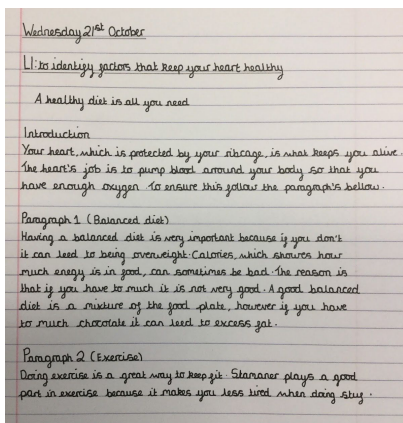 Wednesday 21st October
LI: to identify factors that keep your heart healthy
A healthy diet is all you need
Introduction
Your heart, which is protected by your ribcage, is what keeps you alive.
The heart's job is to pump blood around your body so that you
have enough oxygen. To ensure this follow the paragraph's bellow.
Paragraph 1 (Balanced diet)
Having a balanced diet is very important because if you don't
it can leed to being overweight. Calories, which showes how
much energy is in food, can sometimes be bad. The reason is
that if you have to much it is not very good. A good balanced
diet is a mixture of the food plate, however if you have
to much chocolate it can leed to excess fat.
Paragraph 2 (Exercise)
Doing exercise is a great way to keep fit. Stamaner plays a good
part in exercise because it makes you less tired when doing stuf.